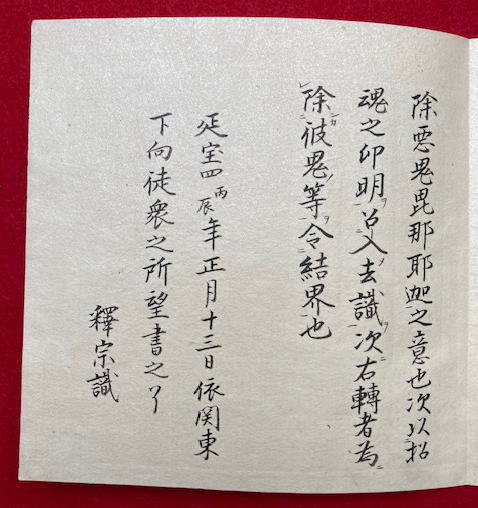 除悪鬼毘那耶迦之意也次以招
魂之印明ヲ召入メ去識ヲ次ニ右轉者為ニ
除ンカ彼鬼ノ等ヲ令結界也
延宝四丙辰年正月十三日依関東
下向徒衆之所望書之了
釋宗識